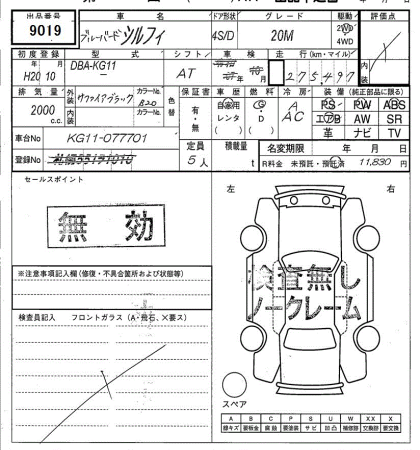 出品番号 車名 ドア形状 グレード 駆動 評価点
9019 ブルーバード シルフィ 4S/D 20M 2WD 4WD
初度登録 型式 シフト 車検 走行(km・マイル) 内
H20 10 DBA-KG11 AT 年 月 275,497
排気量 外装 カラーNo. 色替 保証書 車歴 燃料 冷房 装備(純正部品に限る)
2000 c.c. サファイアブラック B20 有・無 自家用 レンタ ( ) G D ( ) A AC PS PW ABS
内装 カラーNo. エアB AW SR
革 ナビ TV
車台No KG11-077701 定員 5人 積載量 t 名変期限 年 月 日
登録No R料金 未預託・預託済 11,830円
セールスポイント 左 右
無効
※注意事項記入欄(修復・不具合箇所および状態等)
検査無し
ノークレーム
検査員記入 フロントガラス(A・飛石、X要ス)
スペア
A B C P S U W X XX
線キズ 要板金 腐蝕 要塗装 サビ 凹凸 補修跡 要交換